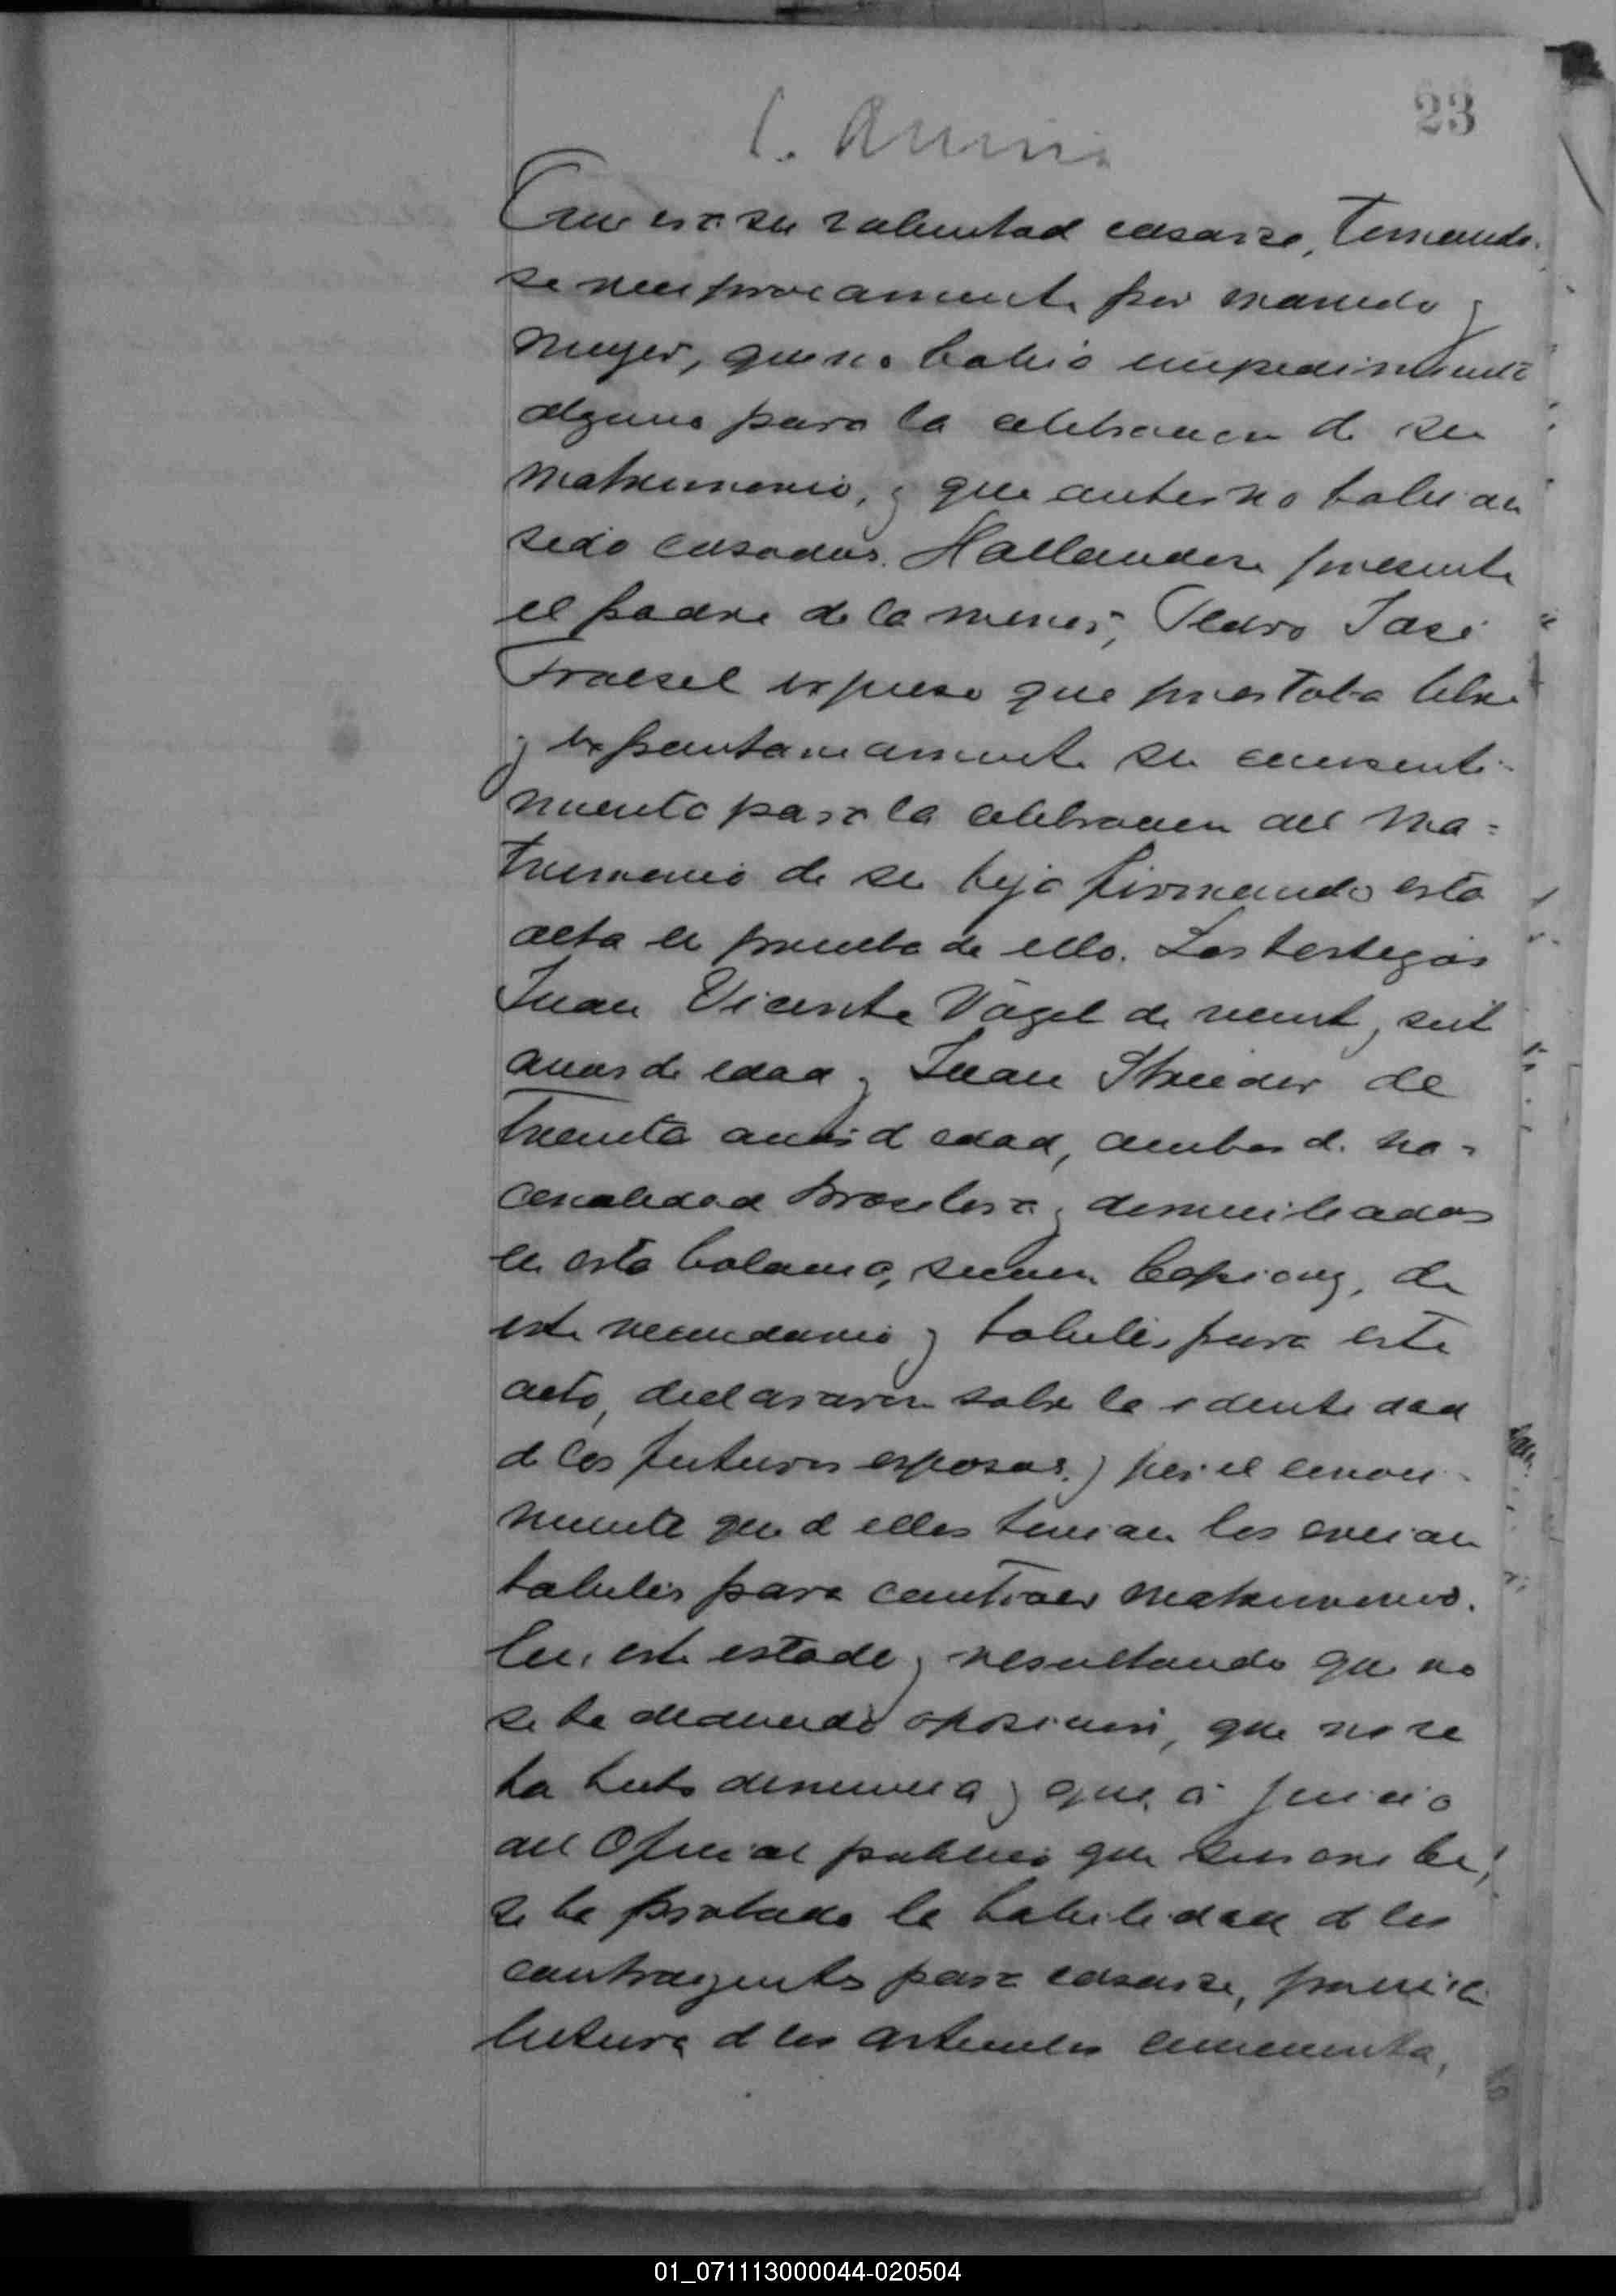 23
Que era su voluntad casarse, tomando-
se reciprocamente por marido y
mujer, que no había impedimento
alguno para la celebracion de su
matrimonio, y que antes no habian
sido casados. Hallandose presente
el padre de la menor, Pedro José
Fraesel expuso que prestaba libre
y expontaneamente su consenti-
miento para la celebracion del ma=
trimonio de su hija firmando esta
acta en prueba de ello. Los testigos
Juan Vicente Vogel de veint y siet
años de edad y Juan Streider de
treinta años d edad, ambos d. na-
cionalidad Brasilera y domiciliados
en esta Colonia, seccion Capiovy, de
este vecindario y habiles para este
acto, declararon sobre la identidad
d los futuros esposos y por el conoci-
miento que d ellos tenian los creian
habiles para contraer matrimonio.
En este estado y resultando que no
se ha deducido oposicion, que no se
ha hecho denuncia y que, á juicio
del Oficial publico que suscribe,
se ha probado la habilidad d los
contrayentes para casarse, previa
lectura d los articulos cincuenta,
01_071113000044-020504